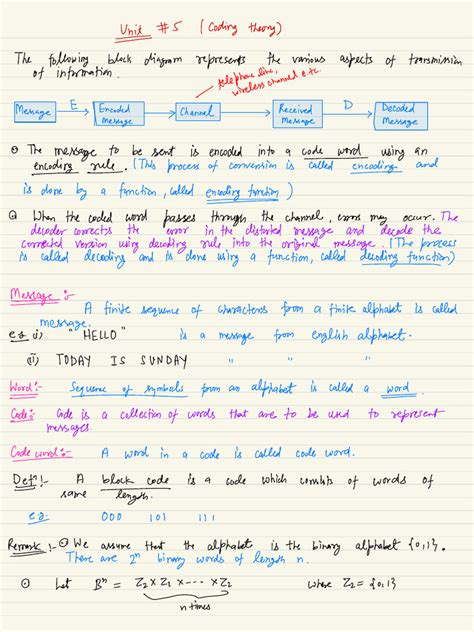 Unit #5 (Coding theory)
The following block diagram represents the various aspects of transmission
of information.
telephone line,
wireless channel etc.
Message E Encoded Message Channel Received Message D Decoded Message
① The message to be sent is encoded into a code word using an
encoding rule. (This process of conversion is called encoding and
is done by a function, called encoding function)
② When the coded word passes through the channel, errors may occur. The
decoder corrects the error in the distorted message and decode the
corrected version using decoding rule into the original message. (The process
is called decoding and is done using a function, called decoding function)
Message :-
A finite sequence of characters from a finite alphabet is called
message.
eg (i) "HELLO" is a message from english alphabet.
(ii) TODAY IS SUNDAY " " "
Word:- Sequence of symbols from an alphabet is called a word.
Code:- Code is a collection of words that are to be used to represent
messages.
Code word:- A word in a code is called code word.
Def!:- A block code is a code which consists of words of
same length.
eg: 000 101 111
Remark:- ① We assume that the alphabet is the binary alphabet {0,1}.
There are 2ⁿ binary words of length n.
① Let Bⁿ = Z₂ × Z₂ × ··· × Z₂ where Z₂ = {0,1}
n times